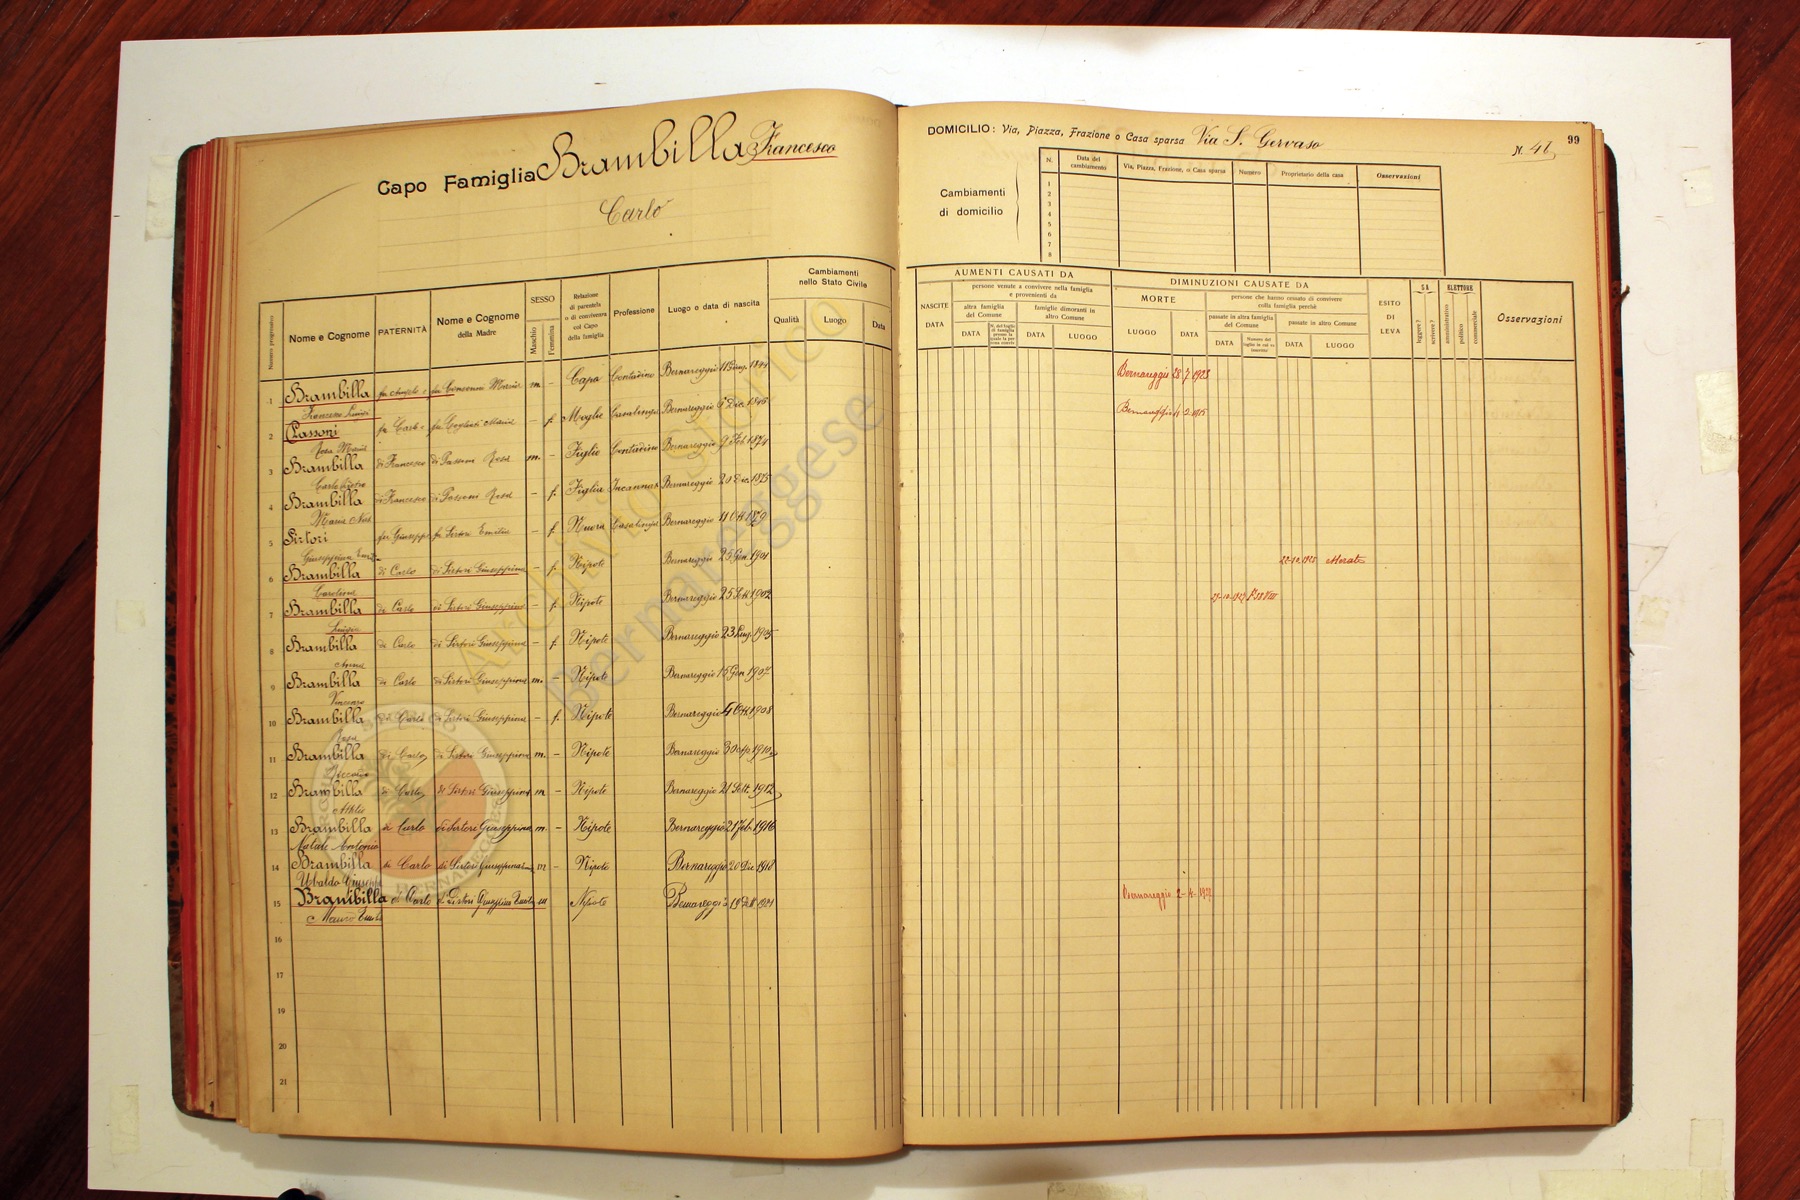 Capo Famiglia Brambilla Francesco
Carlo
DOMICILIO: Via, Piazza, Frazione o Casa sparsa Via S. Gervaso
N. 41
99
Cambiamenti
di domicilio
N. Data del cambiamento Via, Piazza, Frazione, o Casa sparsa Numero Proprietario della casa Osservazioni
1
2
3
4
5
6
7
8
Numero progressivo
Nome e Cognome
PATERNITÀ
Nome e Cognome della Madre
SESSO
Maschio
Femmina
Relazione di parentela o di convivenza col Capo della famiglia
Professione
Luogo e data di nascita
Cambiamenti nello Stato Civile
Qualità Luogo Data
AUMENTI CAUSATI DA
NASCITE DATA
persone venute a convivere nella famiglia e provenienti da
altra famiglia del Comune
DATA
famiglie dimoranti in altro Comune
DATA LUOGO
DIMINUZIONI CAUSATE DA
MORTE
LUOGO DATA
persone che hanno cessato di convivere colla famiglia perchè
passate in altra famiglia del Comune
DATA
passate in altro Comune
DATA LUOGO
ESITO DI LEVA
SA
leggere? scrivere?
ELETTORE
amministrativo politico commerciale
Osservazioni
1 Brambilla m. - Capo Contadino Bernareggio 1844 Bernareggio 28 7 1923
Francesco Luigi
2 Passoni fu Carlo - f. Moglie Casalinga Bernareggio 6 Dic. 1845 Bernareggio
Rosa Maria
3 Brambilla di Francesco di Passoni Rosa m. - Figlio Contadino Bernareggio 9 Feb 1874
Carlo
4 Brambilla di Francesco di Passoni Rosa - f. Figlia Bernareggio 20 Dic. 1875
Maria
5 Sirtori fu Giuseppe fu Sirtori Emilia - f. Nuora Casalinga Bernareggio 11 Ott 1879
Giuseppina
6 Brambilla di Carlo di Sirtori Giuseppina - f. Nipote Bernareggio 25 Gen 1901 22-10 1925 Merate
Carolina
7 Brambilla di Carlo di Sirtori Giuseppina - f. Nipote Bernareggio 25 Sett 1902
Luigia
8 Brambilla di Carlo di Sirtori Giuseppina - f. Nipote Bernareggio 23 1905
Anna
9 Brambilla di Carlo di Sirtori Giuseppina m. - Nipote Bernareggio 15 Gen 1907
Vincenzo
10 Brambilla di Carlo di Sirtori Giuseppina - f. Nipote Bernareggio 4 Ott 1908
Rosa
11 Brambilla di Carlo di Sirtori Giuseppina m. - Nipote Bernareggio 30 1910
12 Brambilla di Carlo di Sirtori Giuseppina m - Nipote Bernareggio 21 Sett. 1912
Attilio
13 Brambilla di Carlo di Sirtori Giuseppina m. - Nipote Bernareggio 21 Feb 1916
Natale Antonio
14 Brambilla di Carlo di Sirtori Giuseppina m - Nipote Bernareggio 20 Dic 1918
Ubaldo Giuseppe
15 Brambilla di Carlo di Sirtori Giuseppina m Nipote Bernareggio 19 1921 Bernareggio 2-4-
Mauro
16
17
18
19
20
21
Archivio Storico
Bernareggese